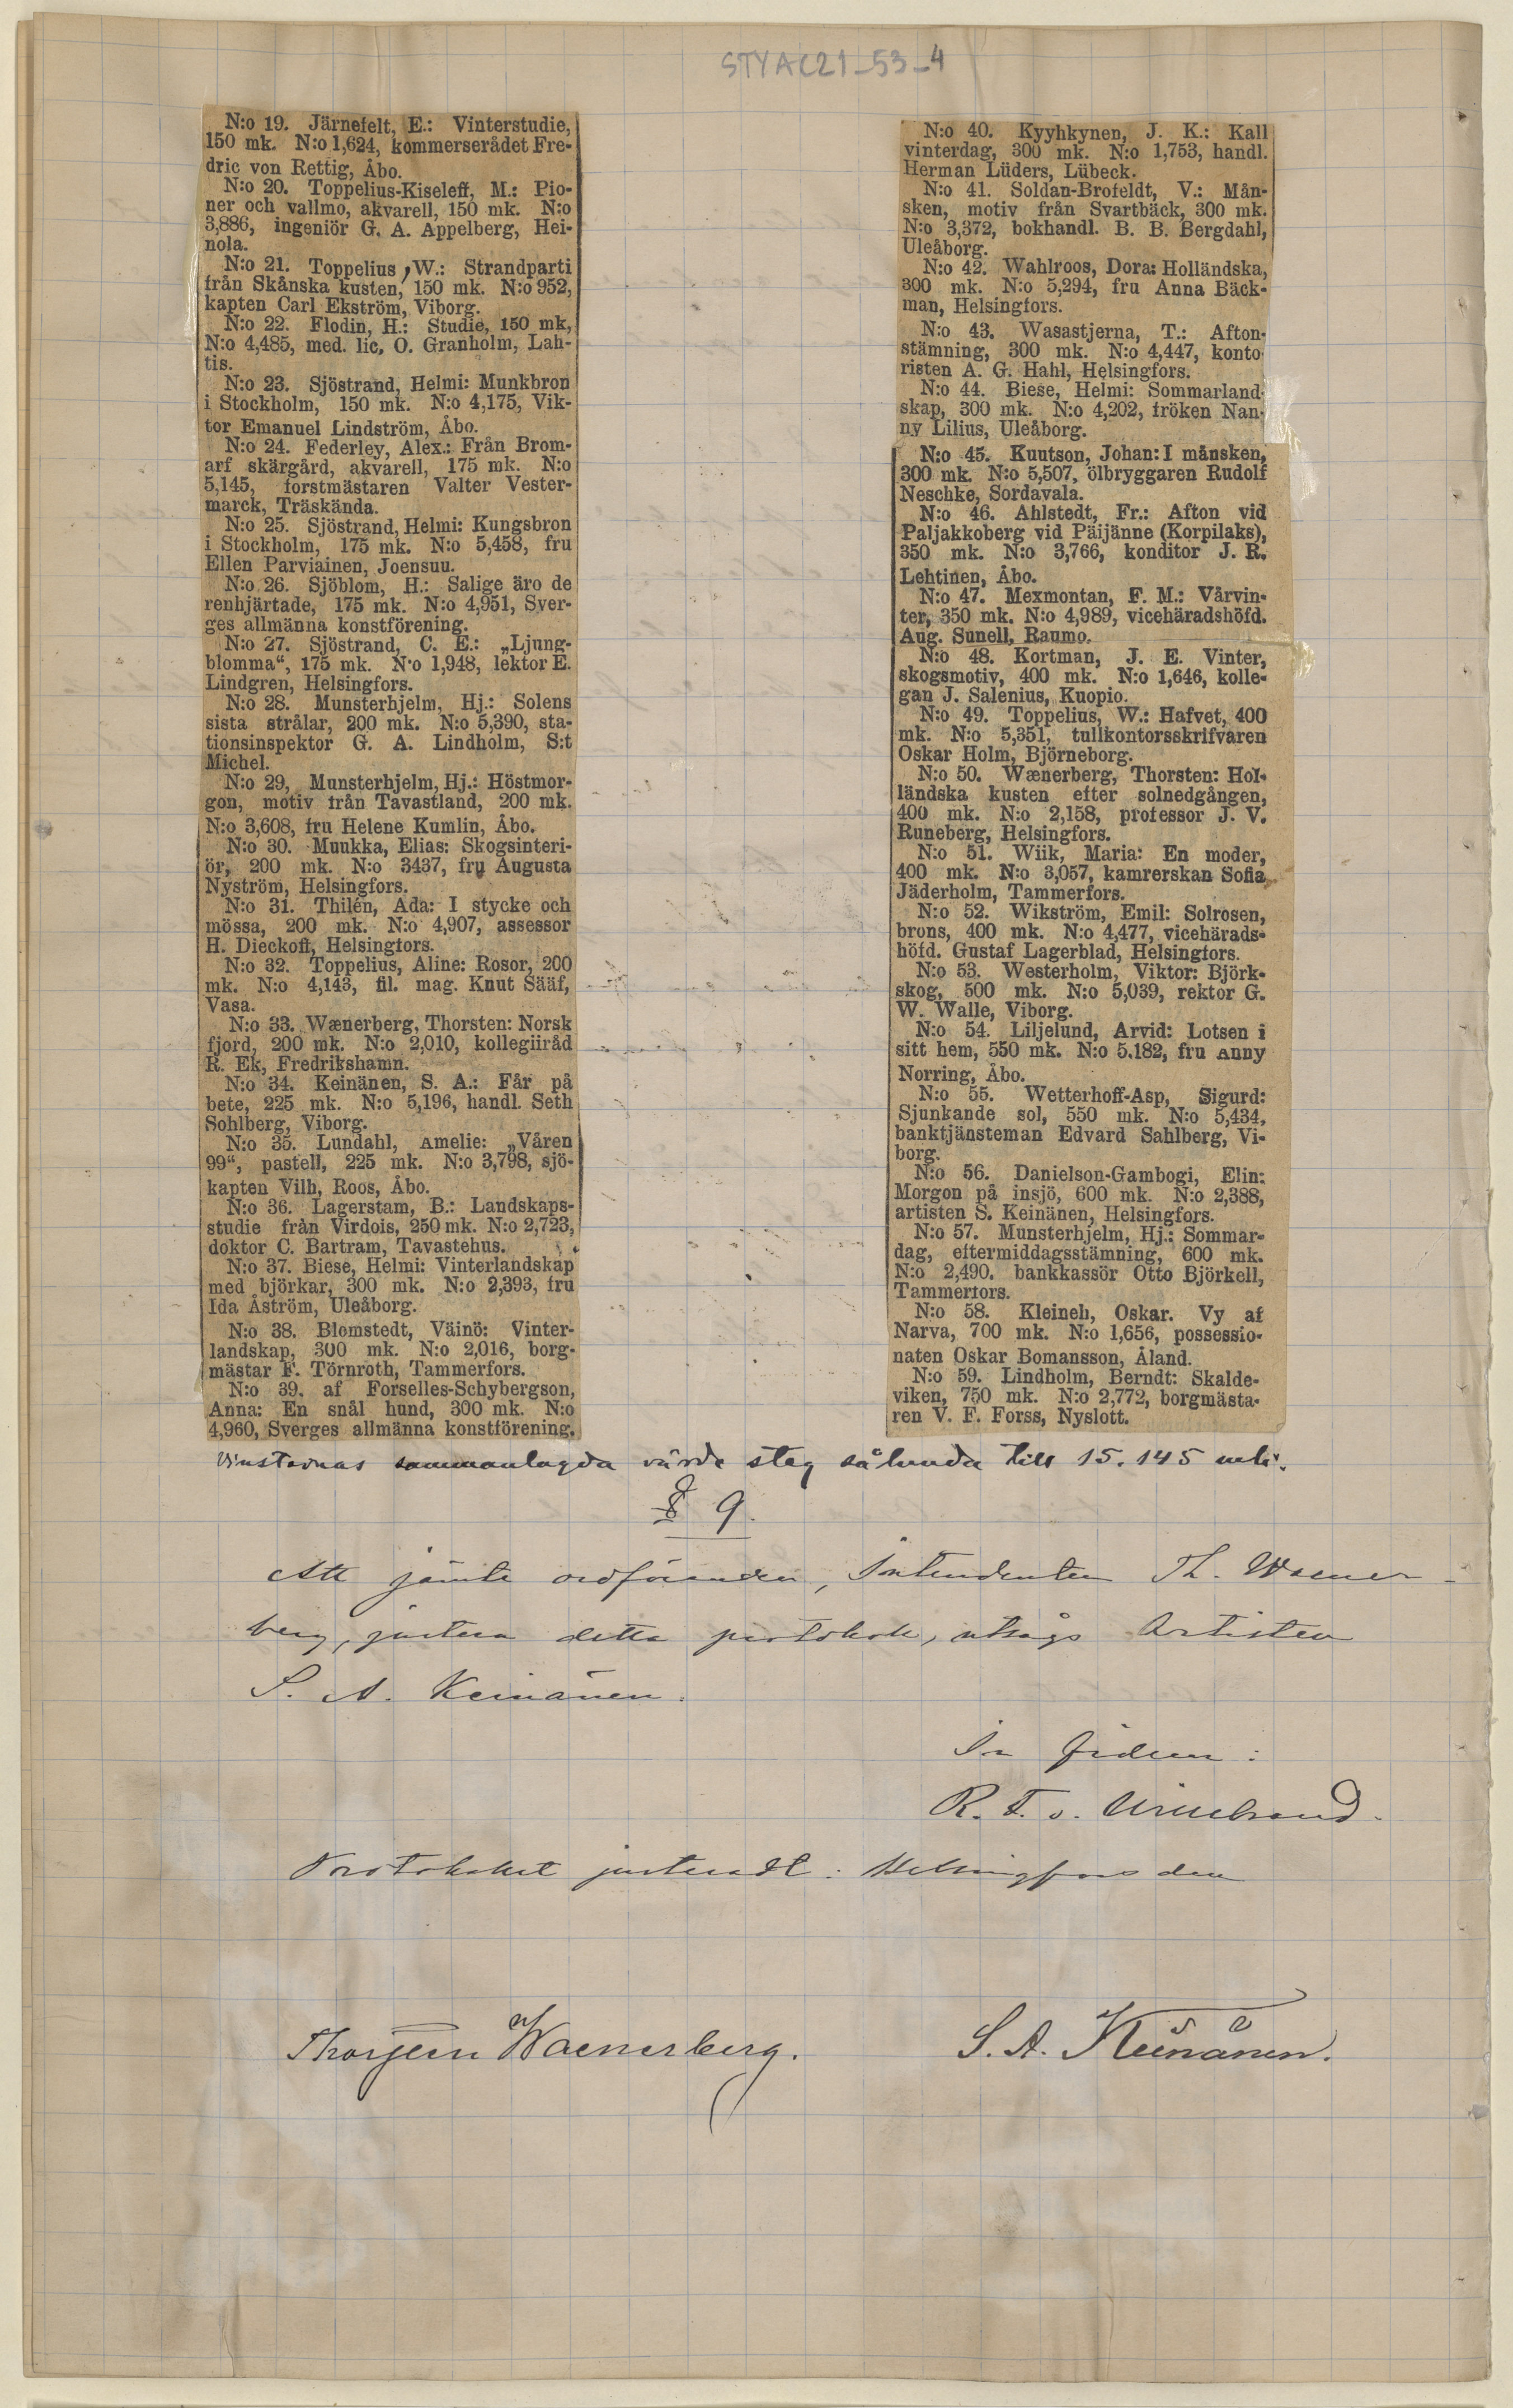 STYAC21-53-4
N:o 19. Järnefelt, E.: Vinterstudie,
150 mk. N:o 1,624, kommerserådet Fre-
dric von Rettig, Åbo.
N:o 20. Toppelius-Kiseleff, M.: Pio-
ner och vallmo, akvarell, 150 mk. N:o
3,886, ingeniör G. A. Appelberg, Hei-
nola.
N:o 21. Toppelius, W.: Strandparti
från Skånska kusten, 150 mk. N:o 952,
kapten Carl Ekström, Viborg.
N:o 22. Flodin, H.: Studie, 150 mk,
N:o 4,485, med. lic. O. Granholm, Lah-
tis.
N:o 23. Sjöstrand, Helmi: Munkbron
i Stockholm, 150 mk. N:o 4,175, Vik-
tor Emanuel Lindström, Åbo.
N:o 24. Federley, Alex.: Från Brom-
arf skärgård, akvarell, 175 mk. N:o
5,145, forstmästaren Valter Vester-
marck, Träskända.
N:o 25. Sjöstrand, Helmi: Kungsbron
i Stockholm, 175 mk. N:o 5,458, fru
Ellen Parviainen, Joensuu.
N:o 26. Sjöblom, H.: Salige äro de
renhjärtade, 175 mk. N:o 4,951, Sver-
ges allmänna konstförening.
N:o 27. Sjöstrand, C. E.: „Ljung-
blomma“, 175 mk. N:o 1,948, lektor E.
Lindgren, Helsingfors.
N:o 28. Munsterhjelm, Hj.: Solens
sista strålar, 200 mk. N:o 5,390, sta-
tionsinspektor G. A. Lindholm, S:t
Michel.
N:o 29, Munsterhjelm, Hj.: Höstmor-
gon, motiv från Tavastland, 200 mk.
N:o 3,608, fru Helene Kumlin, Åbo.
N:o 30. Muukka, Elias: Skogsinteri-
ör, 200 mk. N:o 3437, fru Augusta
Nyström, Helsingfors.
N:o 31. Thilén, Ada: I stycke och
mössa, 200 mk. N:o 4,907, assessor
H. Dieckoff, Helsingfors.
N:o 32. Toppelius, Aline: Rosor, 200
mk. N:o 4,143, fil. mag. Knut Sääf,
Vasa.
N:o 33. Wænerberg, Thorsten: Norsk
fjord, 200 mk. N:o 2,010, kollegiiråd
R. Ek, Fredrikshamn.
N:o 34. Keinänen, S. A.: Får på
bete, 225 mk. N:o 5,196, handl. Seth
Sohlberg, Viborg.
N:o 35. Lundahl, Amelie: „Våren
99“, pastell, 225 mk. N:o 3,798, sjö-
kapten Vilh, Roos, Åbo.
N:o 36. Lagerstam, B.: Landskaps-
studie från Virdois, 250 mk. N:o 2,723,
doktor C. Bartram, Tavastehus.
N:o 37. Biese, Helmi: Vinterlandskap
med björkar, 300 mk. N:o 2,393, fru
Ida Åström, Uleåborg.
N:o 38. Blomstedt, Väinö: Vinter-
landskap, 300 mk. N:o 2,016, borg-
mästar F. Törnroth, Tammerfors.
N:o 39. af Forselles-Schybergson,
Anna: En snål hund, 300 mk. N:o
4,960, Sverges allmänna konstförening.
N:o 40. Kyyhkynen, J. K.: Kall
vinterdag, 300 mk. N:o 1,753, handl.
Herman Lüders, Lübeck.
N:o 41. Soldan-Brofeldt, V.: Mån-
sken, motiv från Svartbäck, 300 mk.
N:o 3,372, bokhandl. B. B. Bergdahl,
Uleåborg.
N:o 42. Wahlroos, Dora: Holländska,
300 mk. N:o 5,294, fru Anna Bäck-
man, Helsingfors.
N:o 43. Wasastjerna, T.: Afton-
stämning, 300 mk. N:o 4,447, konto-
risten A. G. Hahl, Helsingfors.
N:o 44. Biese, Helmi: Sommarland-
skap, 300 mk. N:o 4,202, fröken Nan-
ny Lilius, Uleåborg.
N:o 45. Knutson, Johan: I månsken,
300 mk. N:o 5,507, ölbryggaren Rudolf
Neschke, Sordavala.
N:o 46. Ahlstedt, Fr.: Afton vid
Paljakkoberg vid Päijänne (Korpilaks),
350 mk. N:o 3,766, konditor J. R.
Lehtinen, Åbo.
N:o 47. Mexmontan, F. M.: Vårvin-
ter, 350 mk. N:o 4,989, vicehäradshöfd.
Aug. Sunell, Raumo.
N:o 48. Kortman, J. E. Vinter,
skogsmotiv, 400 mk. N:o 1,646, kolle-
gan J. Salenius, Kuopio.
N:o 49. Toppelius, W.: Hafvet, 400
mk. N:o 5,351, tullkontorsskrifvaren
Oskar Holm, Björneborg.
N:o 50. Wænerberg, Thorsten: Hol-
ländska kusten efter solnedgången,
400 mk. N:o 2,158, professor J. V.
Runeberg, Helsingfors.
N:o 51. Wiik, Maria: En moder,
400 mk. N:o 3,057, kamrerskan Sofia
Jäderholm, Tammerfors.
N:o 52. Wikström, Emil: Solrosen,
brons, 400 mk. N:o 4,477, vicehärads-
höfd. Gustaf Lagerblad, Helsingfors.
N:o 53. Westerholm, Viktor: Björk-
skog, 500 mk. N:o 5,039, rektor G.
W. Walle, Viborg.
N:o 54. Liljelund, Arvid: Lotsen i
sitt hem, 550 mk. N:o 5,182, fru Anny
Norring, Åbo.
N:o 55. Wetterhoff-Asp, Sigurd:
Sjunkande sol, 550 mk. N:o 5,434,
banktjänsteman Edvard Sahlberg, Vi-
borg.
N:o 56. Danielson-Gambogi, Elin:
Morgon på insjö, 600 mk. N:o 2,388,
artisten S. Keinänen, Helsingfors.
N:o 57. Munsterhjelm, Hj.: Sommar-
dag, eftermiddagsstämning, 600 mk.
N:o 2,490. bankkassör Otto Björkell,
Tammerfors.
N:o 58. Kleineh, Oskar. Vy af
Narva, 700 mk. N:o 1,656, possessio-
naten Oskar Bomansson, Åland.
N:o 59. Lindholm, Berndt: Skalde-
viken, 750 mk. N:o 2,772, borgmästa-
ren V. F. Forss, Nyslott.
Vinsternas sammanlagda värde steg sålunda till 15.145 mk.
§ 9.
Att jämte ordföranden, Intendenten Th. Waener-
berg, justera detta protokoll, utsågs Artisten
S. A. Keinänen.
In fidem:
R. F. v. Willebrand.
Protokollet justeradt: Helsingfors den
Thorsten Waenerberg.
S. A. Keinänen.